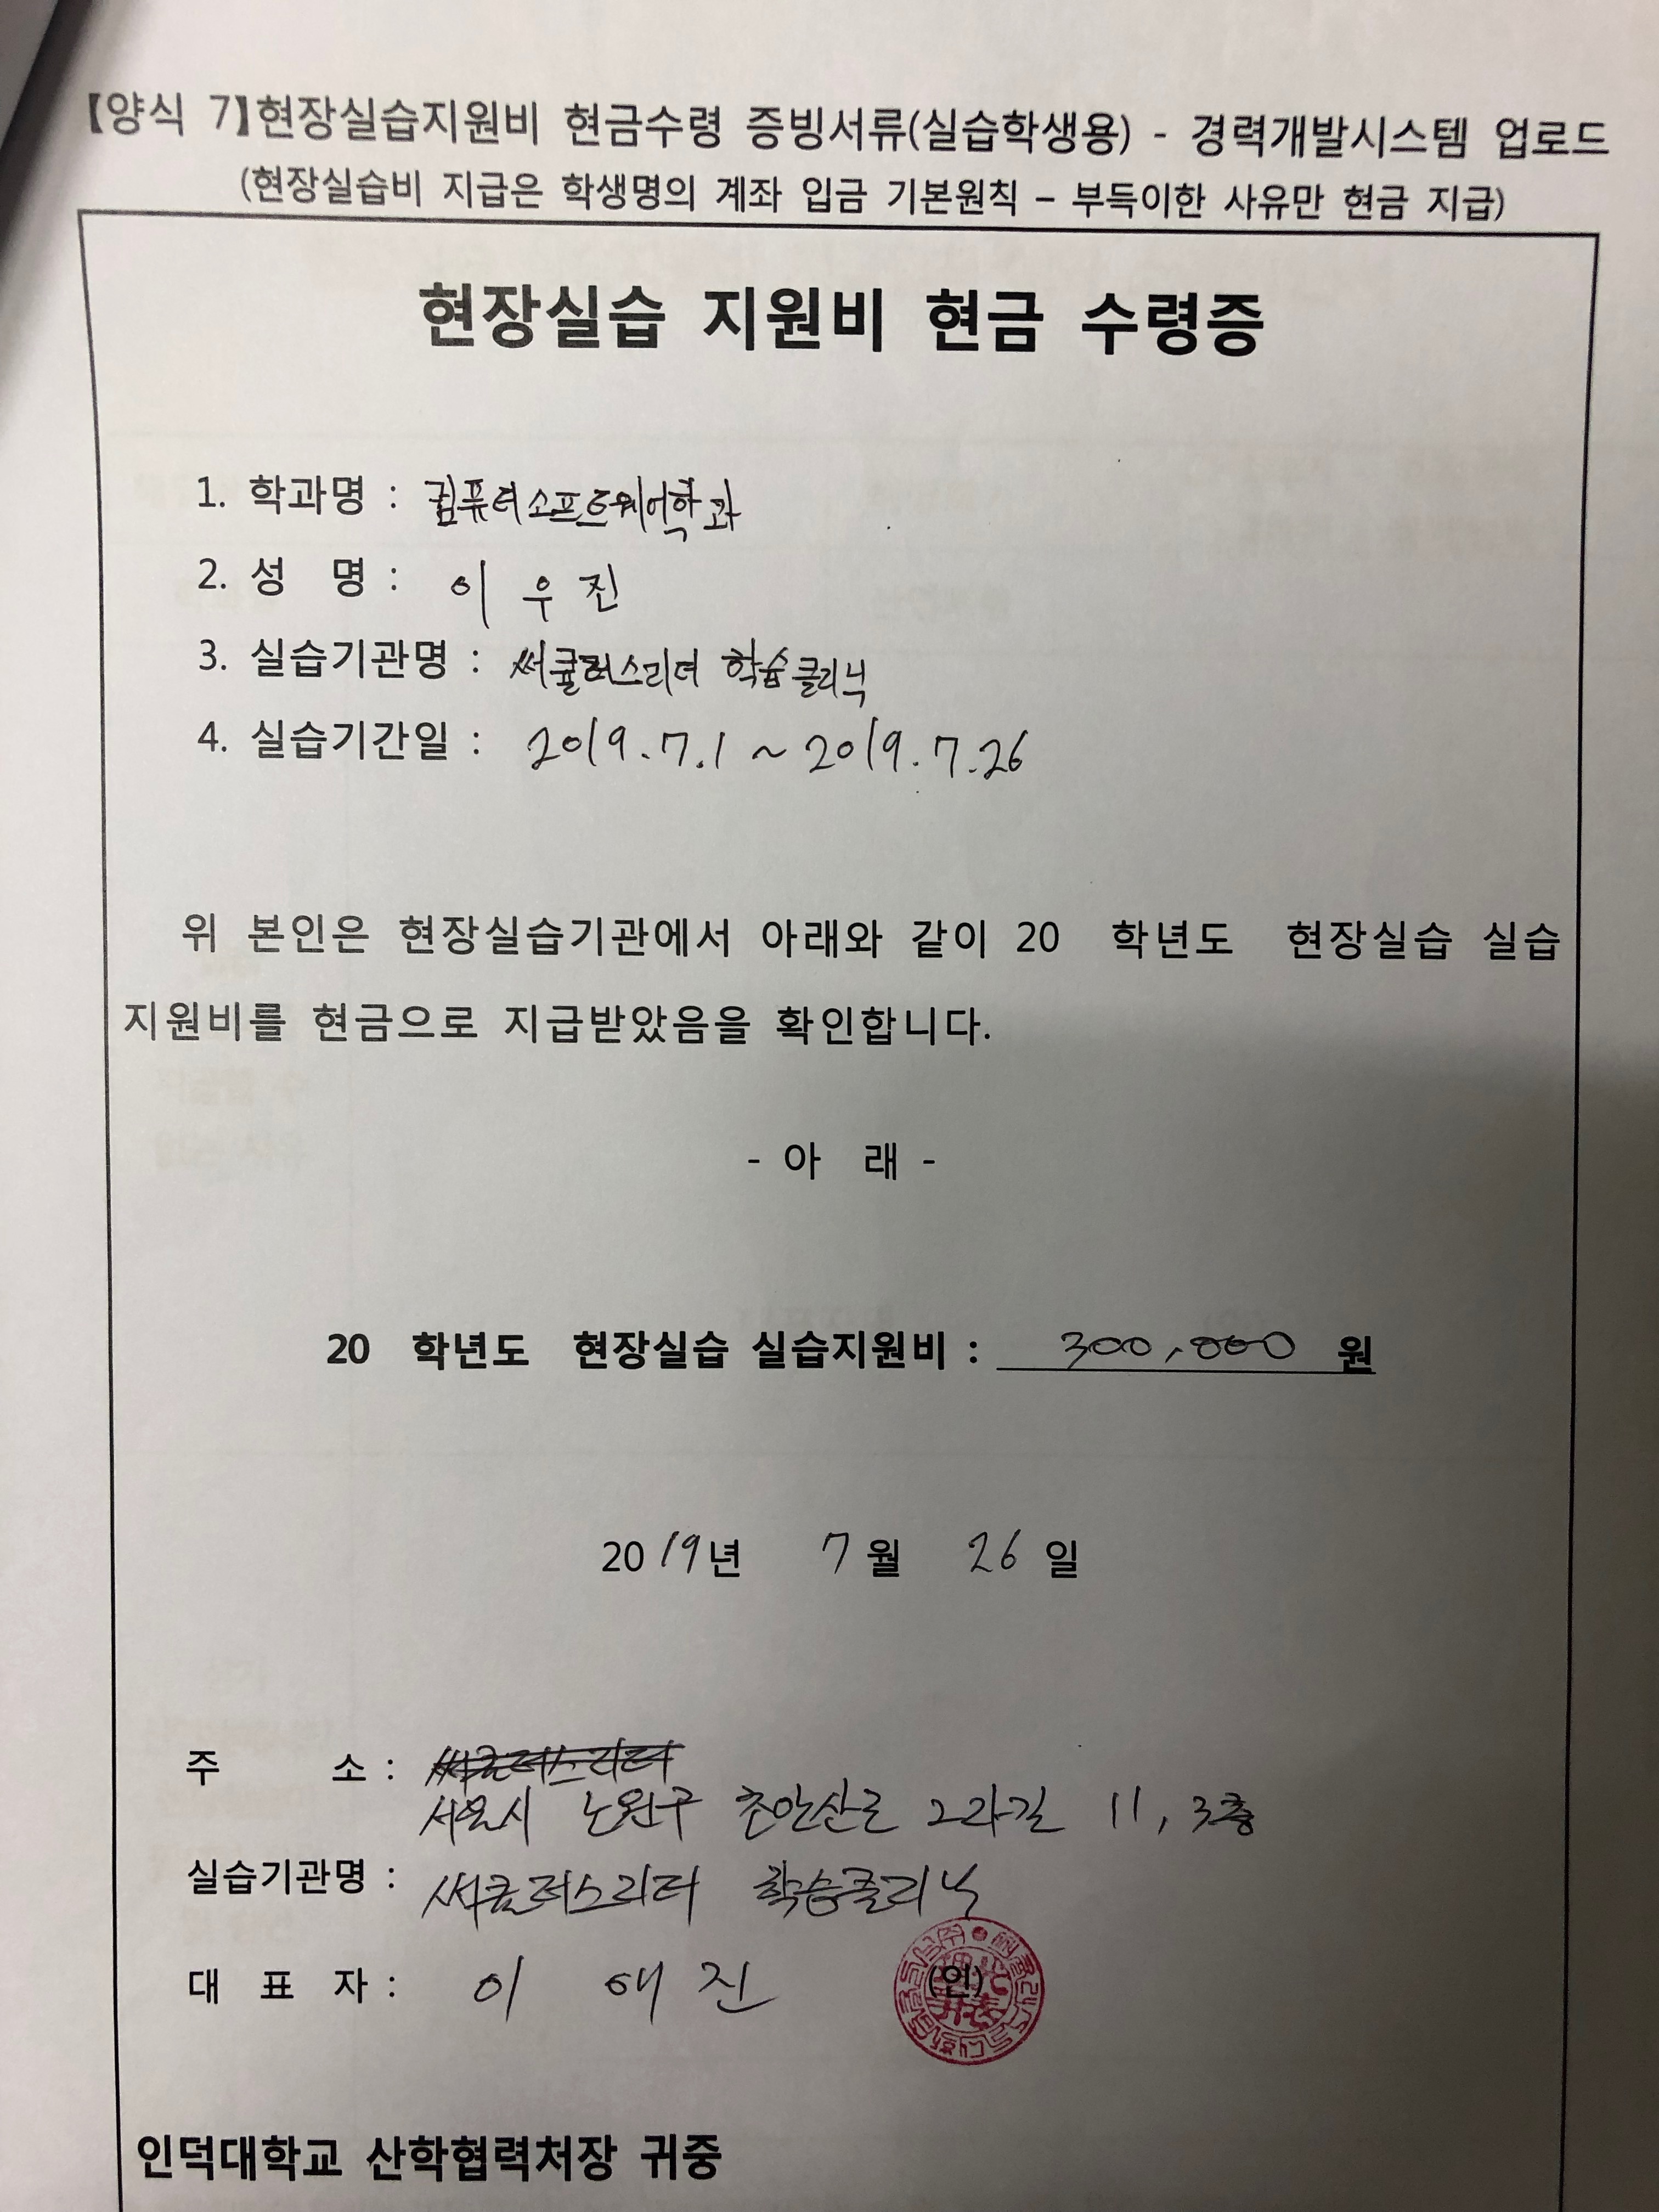 【양식 7】현장실습지원비 현금수령 증빙서류(실습학생용) - 경력개발시스템 업로드
(현장실습비 지급은 학생명의 계좌 입금 기본원칙 – 부득이한 사유만 현금 지급)
현장실습 지원비 현금 수령증
1. 학과명 : 컴퓨터소프트웨어학과
2. 성 명 : 이 우 진
3. 실습기관명 : 써큘러스리더 학습클리닉
4. 실습기간일 : 2019.7.1 ~ 2019.7.26
위 본인은 현장실습기관에서 아래와 같이 20 학년도 현장실습 실습
지원비를 현금으로 지급받았음을 확인합니다.
- 아 래 -
20 학년도 현장실습 실습지원비 : 300,000 원
2019년 7월 26일
주 소 :
서울시 노원구 초안산로 2라길 11, 3층
실습기관명 : 써큘러스리더 학습클리닉
대 표 자 : 이 애 진 (인)
인덕대학교 산학협력처장 귀중